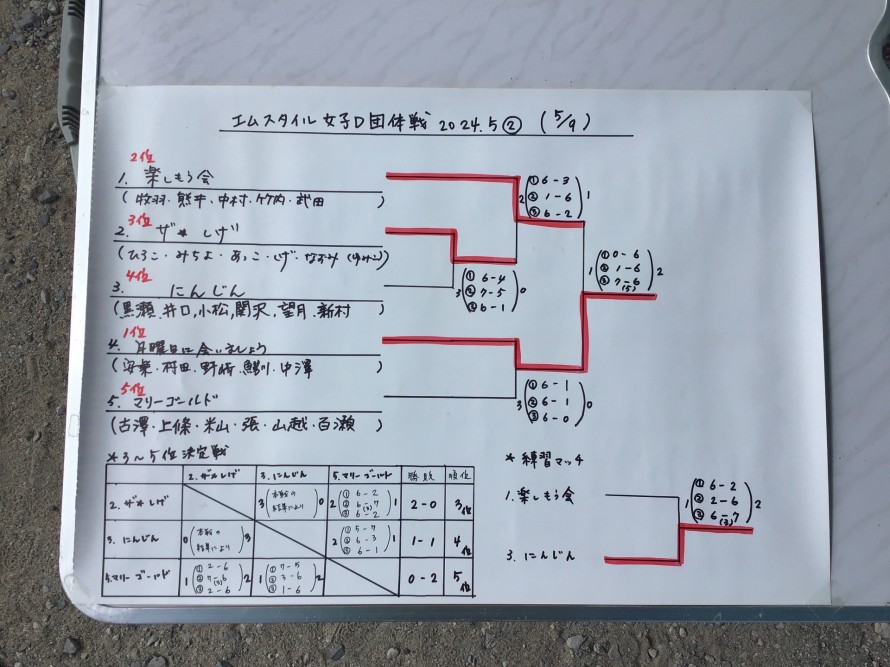 エムスタイル 女子D団体戦 2024.5② (5/9)
2位
1. 楽しもう会
(牧羽・熊井・中村・竹内・武田)
3位
2. ザ★しげ
(ひろこ・みちよ・あっこ・しげ・なおみ(ゆみこ))
4位
3. にんじん
(黒瀬,井口,小松,関沢,望月,新村)
1位
4. 月曜日に会いましょう
(安楽・村田・野崎・鮎川・中澤)
5位
5. マリーゴールド
(古澤・上條・米山・張・山越・百瀬)
2 (① 6-3 ② 1-6 ③ 6-2) 1
3 (① 6-4 ② 7-5 ③ 6-1) 0
1 (① 0-6 ② 1-6 ③ 7-6(5)) 2
3 (① 6-1 ② 6-1 ③ 6-0) 0
*3〜5位決定戦
2.ザ★しげ 3.にんじん 5.マリーゴールド 勝敗 順位
2. ザ★しげ 3(本戦の結果により)0 2(① 6-2 ② 6-7(3) ③ 6-2)1 2-0 3位
3. にんじん 0(本戦の結果により)3 2(① 5-7 ② 6-3 ③ 6-1)1 1-1 4位
5.マリーゴールド 1(① 2-6 ② 7-6(3) ③ 2-6)2 1(① 7-5 ② 3-6 ③ 1-6)2 0-2 5位
*練習マッチ
1. 楽しもう会
3. にんじん
1 (① 6-2 ② 2-6 ③ 6-7(3)) 2